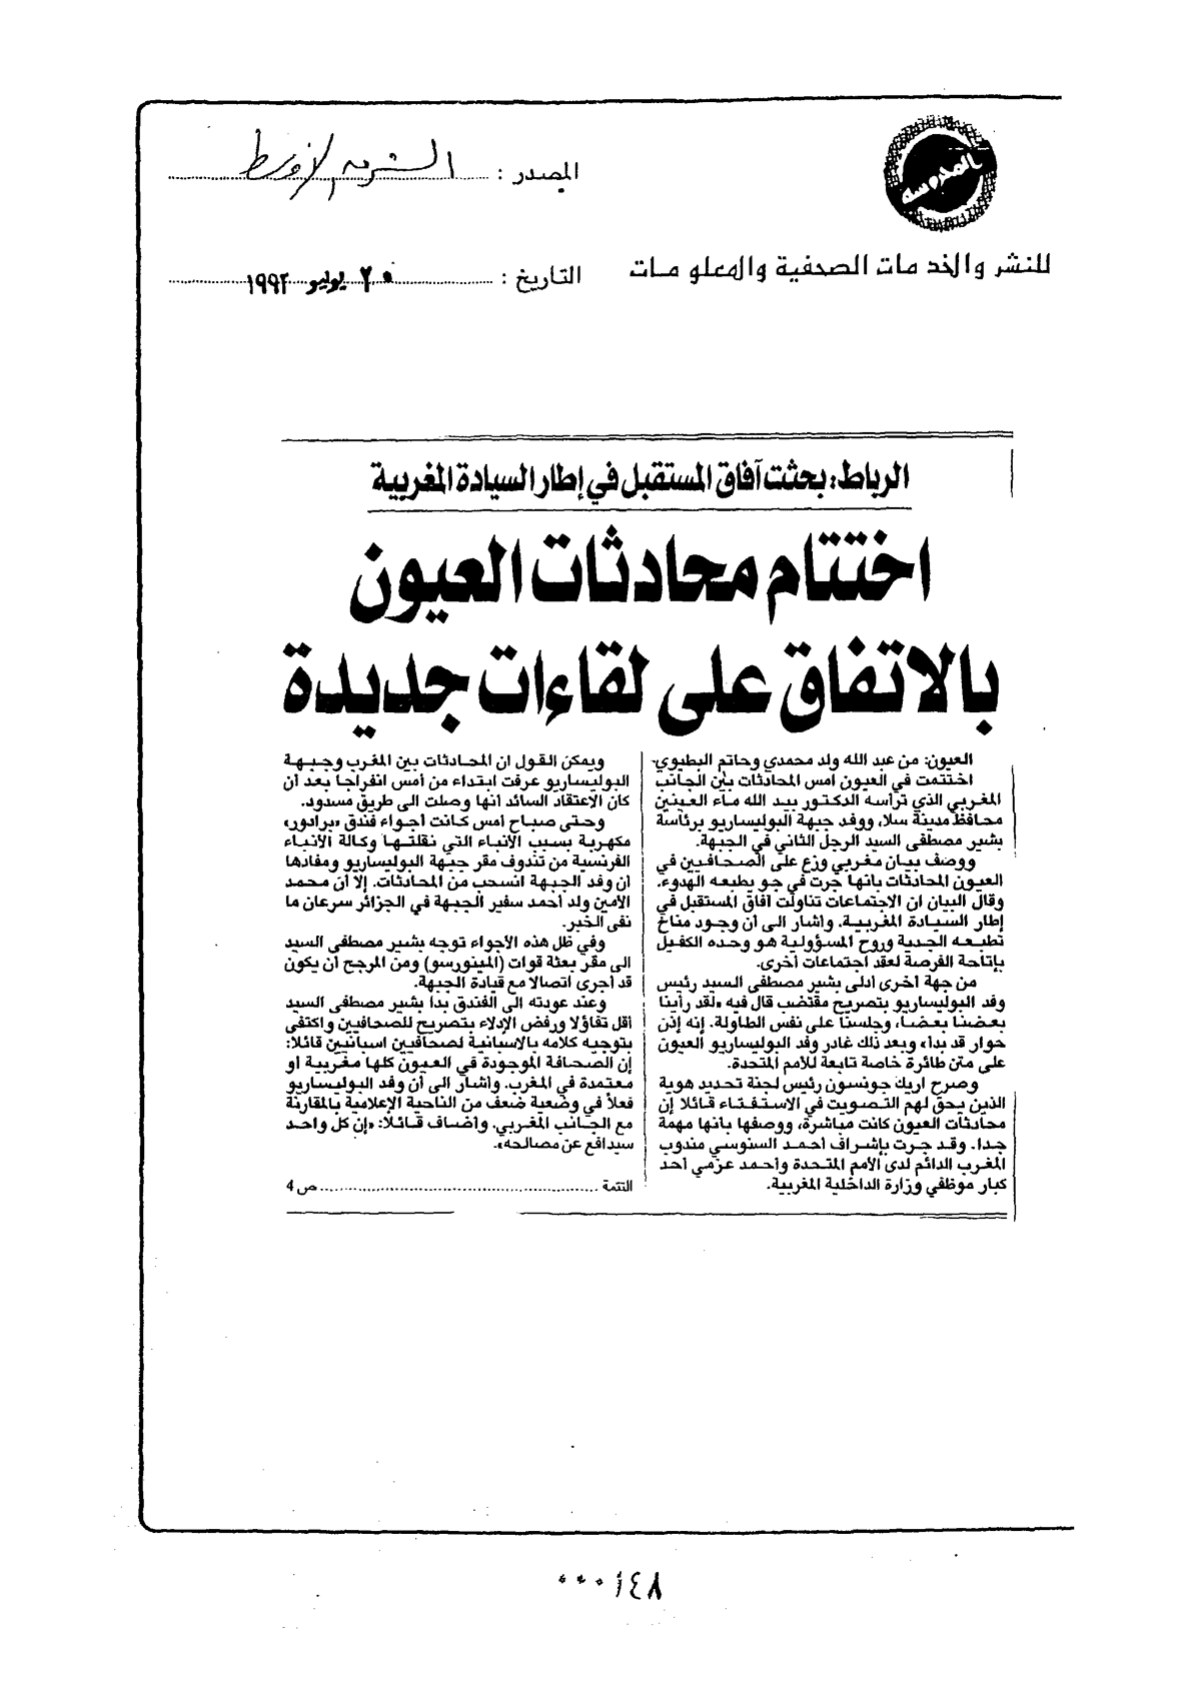 بالمدرسه
المصدر : الشرق الأوسط
للنشر والخدمات الصحفية والمعلومات
التاريخ : ٢٠ يوليو ١٩٩٣
الرباط: بحثت آفاق المستقبل في إطار السيادة المغربية
اختتام محادثات العيون
بالاتفاق على لقاءات جديدة
العيون: من عبد الله ولد محمدي وحاتم البطيوي
اختتمت في العيون أمس المحادثات بين الجانب
المغربي الذي ترأسه الدكتور بيد الله ماء العينين
محافظ مدينة سلا، ووفد جبهة البوليساريو برئاسة
بشير مصطفى السيد الرجل الثاني في الجبهة.
ووصف بيان مغربي وزع على الصحافيين في
العيون المحادثات بانها جرت في جو يطبعه الهدوء.
وقال البيان ان الاجتماعات تناولت آفاق المستقبل في
إطار السيادة المغربية. وأشار الى أن وجود مناخ
تطبعه الجدية وروح المسؤولية هو وحده الكفيل
بإتاحة الفرصة لعقد اجتماعات أخرى.
من جهة اخرى أدلى بشير مصطفى السيد رئيس
وفد البوليساريو بتصريح مقتضب قال فيه «لقد رأينا
بعضنا بعضا، وجلسنا على نفس الطاولة. إنه إذن
حوار قد بدا» وبعد ذلك غادر وفد البوليساريو العيون
على متن طائرة خاصة تابعة للأمم المتحدة.
وصرح اريك جونسون رئيس لجنة تحديد هوية
الذين يحق لهم التصويت في الاستفتاء قائلا إن
محادثات العيون كانت مباشرة، ووصفها بانها مهمة
جدا. وقد جرت بإشراف احمد السنوسي مندوب
المغرب الدائم لدى الأمم المتحدة وأحمد عزمي أحد
كبار موظفي وزارة الداخلية المغربية.
ويمكن القول ان المحادثات بين المغرب وجبهة
البوليساريو عرفت ابتداء من أمس انفراجا بعد أن
كان الاعتقاد السائد انها وصلت الى طريق مسدود.
وحتى صباح امس كانت أجواء فندق «برادور»
مكهربة بسبب الأنباء التي نقلتها وكالة الأنباء
الفرنسية من تندوف مقر جبهة البوليساريو ومفادها
أن وفد الجبهة انسحب من المحادثات. إلا أن محمد
الأمين ولد احمد سفير الجبهة في الجزائر سرعان ما
نفى الخبر.
وفي ظل هذه الأجواء توجه بشير مصطفى السيد
الى مقر بعثة قوات (المينورسو) ومن المرجح أن يكون
قد أجرى اتصالا مع قيادة الجبهة.
وعند عودته الى الفندق بدا بشير مصطفى السيد
أقل تفاؤلا ورفض الإدلاء بتصريح للصحافيين واكتفى
بتوجيه كلامه بالاسبانية لصحافيين اسبانيين قائلا:
إن الصحافة الموجودة في العيون كلها مغربية أو
معتمدة في المغرب. وأشار الى أن وفد البوليساريو
فعلا في وضعية ضعف من الناحية الإعلامية بالمقارنة
مع الجانب المغربي. وأضاف قائلا: «إن كل واحد
سيدافع عن مصالحه».
التتمة ص 4
٠٠٠١٤٨